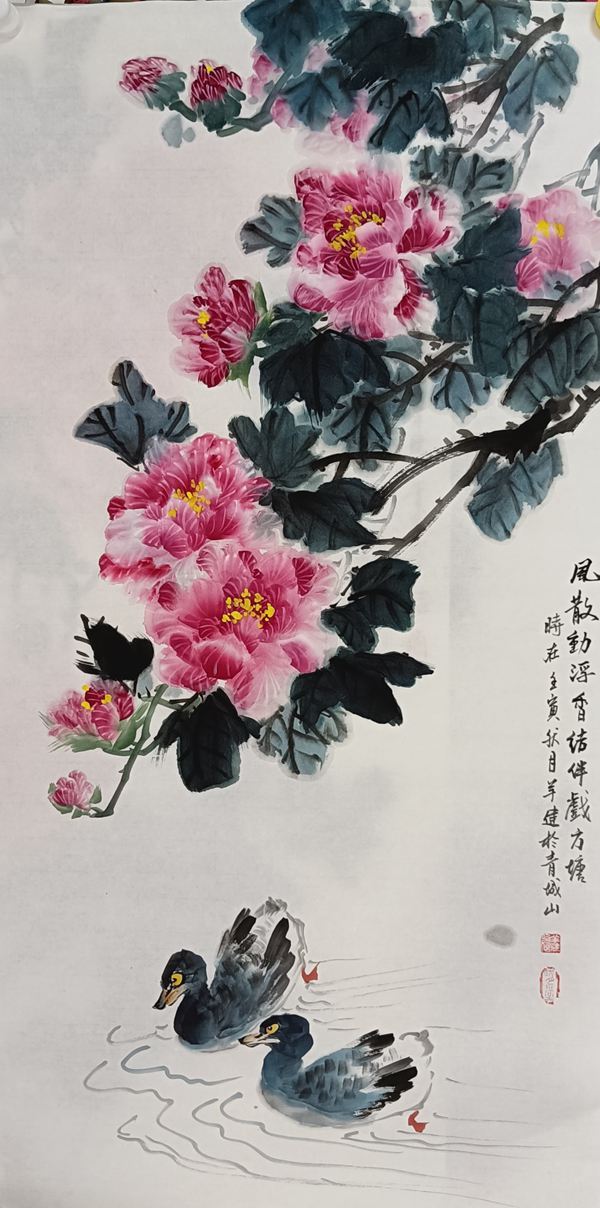 風散動浮香结伴戲方塘
時在壬寅秋月羊建於青城山